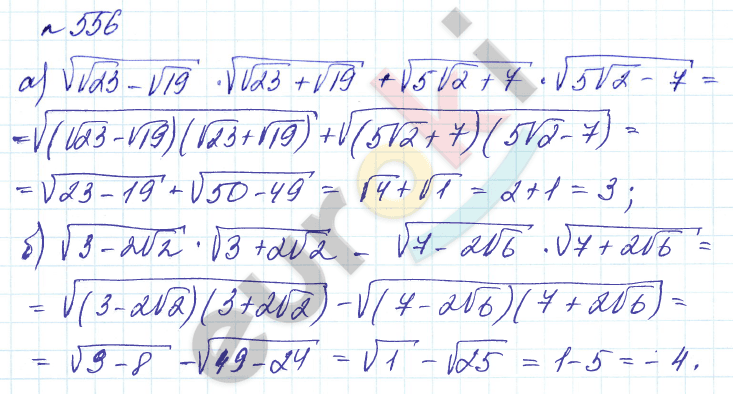 № 556
а) √(√23 − √19) · √(√23 + √19) + √(5√2 + 7) · √(5√2 − 7) =
= √((√23 − √19)(√23 + √19)) + √((5√2 + 7)(5√2 − 7)) =
= √(23 − 19) + √(50 − 49) = √4 + √1 = 2 + 1 = 3;
б) √(3 − 2√2) · √(3 + 2√2) − √(7 − 2√6) · √(7 + 2√6) =
= √((3 − 2√2)(3 + 2√2)) − √((7 − 2√6)(7 + 2√6)) =
= √(9 − 8) − √(49 − 24) = √1 − √25 = 1 − 5 = − 4.
euroki